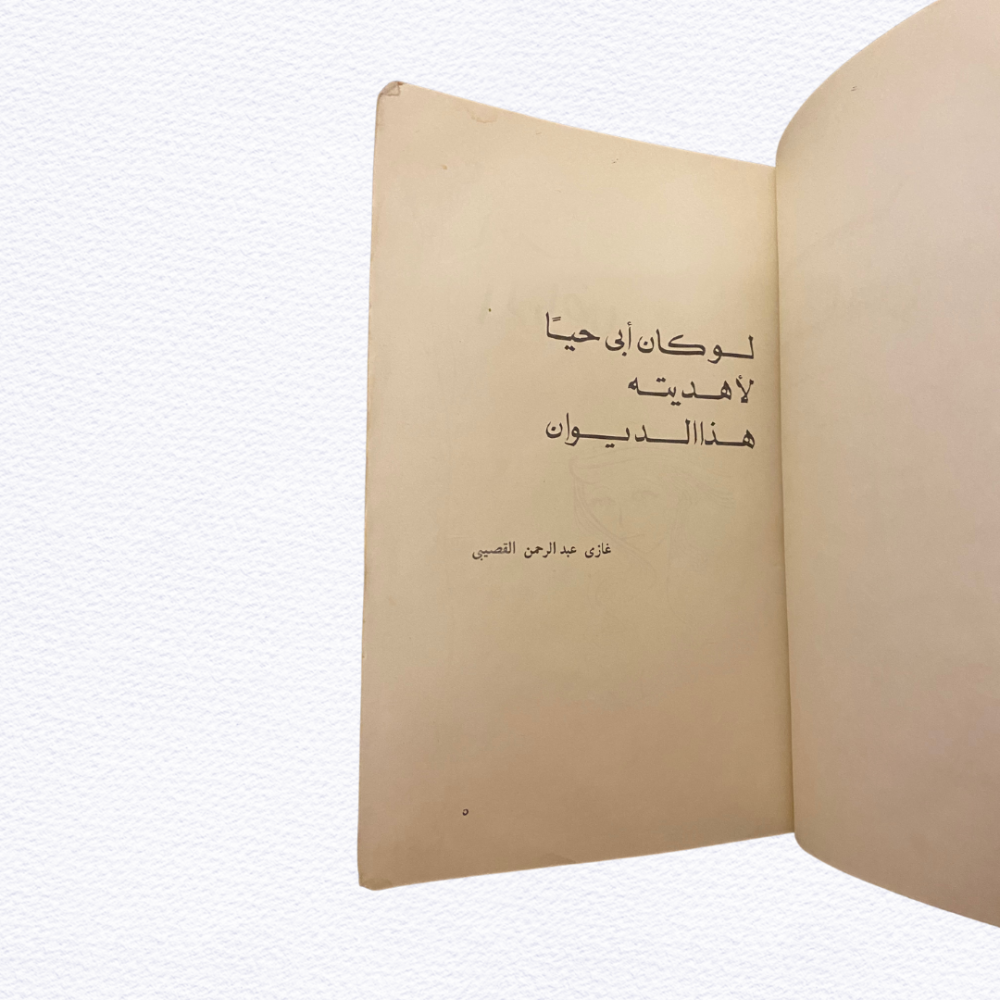 لو كان أبى حيًا
لأهديته
هذا الديوان
غازى عبد الرحمن القصيبى
٥